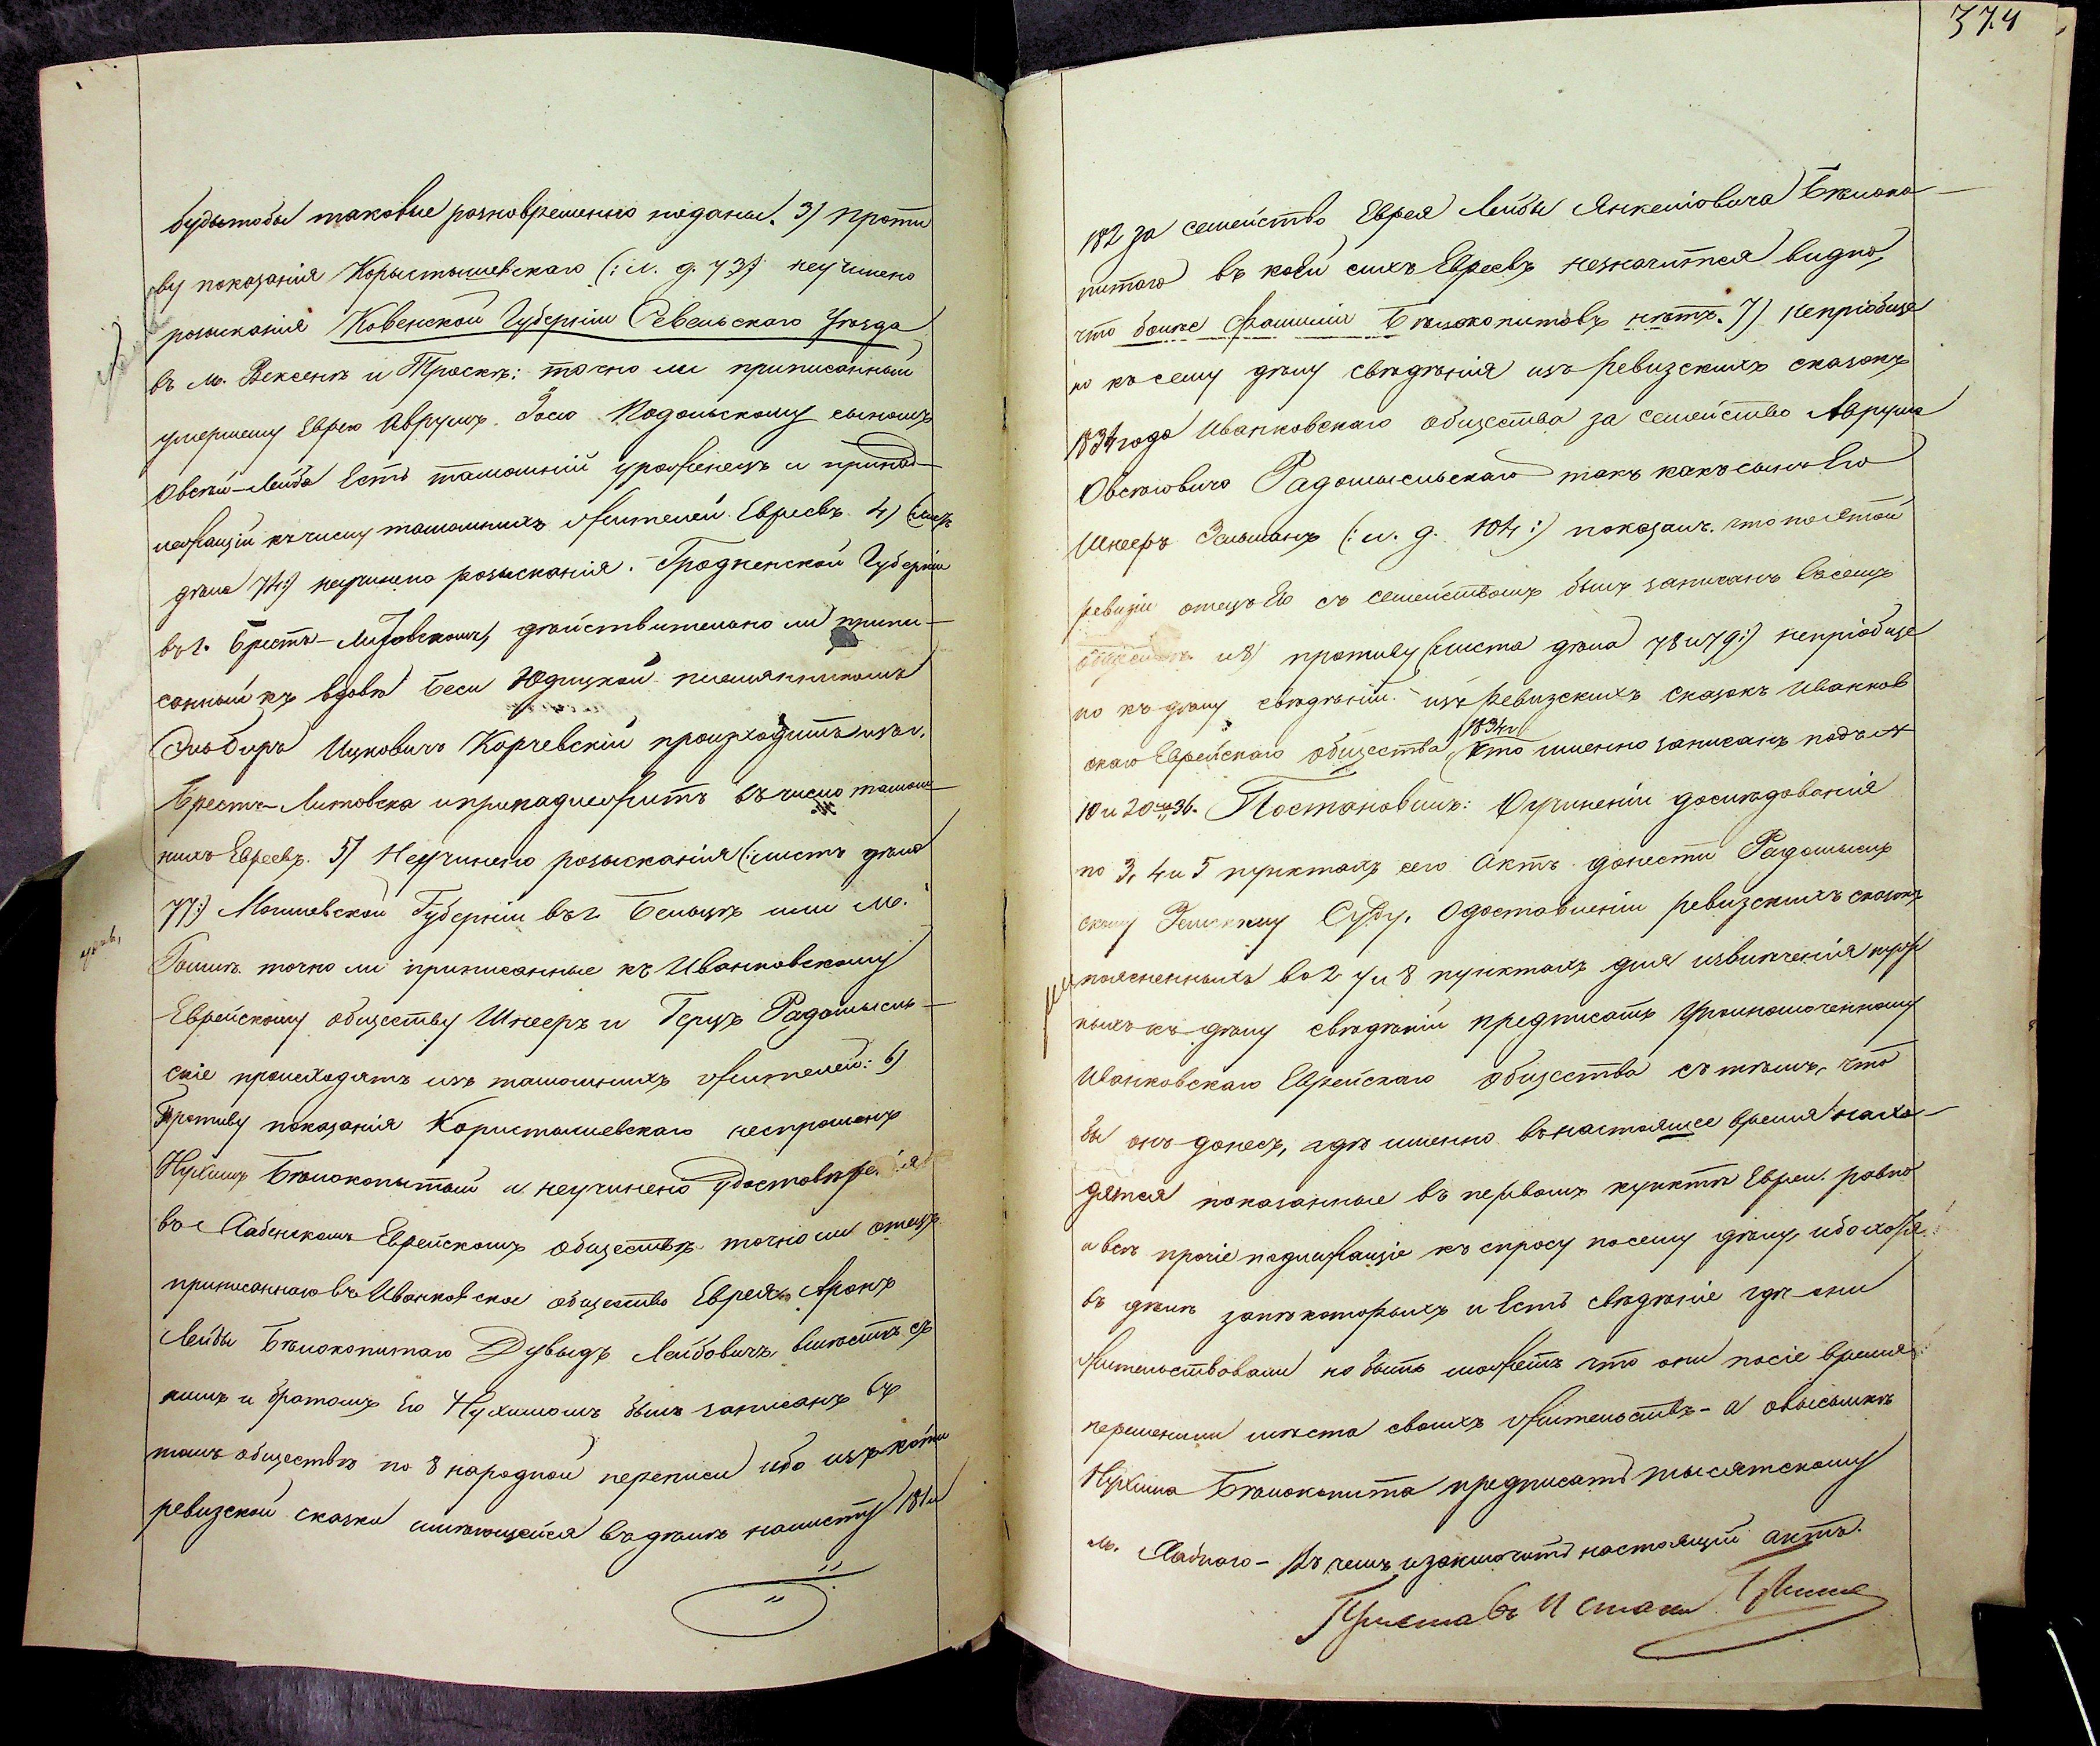 будьтобы таковые разновременно поданы. 3) проти
ву показанія Корыстышевскаго (: л. д. 73:) неучинено
розысканія Ковенской Губерніи Уѣзда
въ м. Вексенѣ и Троскѣ: точно ли приписанный
умершему Еврею Аврумъ Іосю Подольскому сыномъ
Овсѣй-Лейба Есть тамошній уроженецъ и принад-
лежащій къ числу тамошнихъ жителей Евреевъ 4) (листъ
дѣла 74:) неучинено розысканія. Гродненской Губерніи
въ г. Брестъ-Литовскомъ, дѣйствительно ли припи-
санный къ вдовѣ Беси Юдицкой племянникомъ
Ицковичъ Корчевскій произходитъ изъ г.
Брестъ-Литовска и принадлежитъ въ число тамош-
нихъ Евреевъ. 5) Неучинено розысканія (: листъ дѣла
77:) Могилевской Губерніи въ г. или м.
точно ли приписанные къ Иванковскому
Еврейскому обществу Шнееръ и Герцъ Радомысль-
скіе происходятъ изъ тамошнихъ жителей: 6)
Противу показанія Користышевскаго неспрошенъ
Нухимъ Бѣлокопытый и неучинено удостовѣренія
въ Хабенскомъ Еврейскомъ обществѣ точно ли отецъ
приписаннаго въ Иванковское общество Еврея Аронъ
Лейбы Бѣлокопитаго Дувыдъ Лейбовичъ вмѣстѣ съ
нимъ и братомъ Его Нухимомъ былъ записанъ въ
томъ обществѣ по 8 народной переписи ибо изъ копіи
ревизской сказки имѣющейся въ дѣлѣ на листу 181 и
374
182 за семейство Еврея Лейбы Янкеліовича Бѣлоко-
питаго въ коей сихъ Евреевъ незначится видно,
что болѣе Фамиліи Бѣлокопитовъ нѣтъ. 7) Непріобще
но къ сему дѣлу свѣдѣнія изъ Ревизскихъ сказокъ
1834 года Иванковскаго общества за семейство Аврума
Овсѣовича Радомысльскаго такъ какъ сынъ Его
Шнееръ Зельманъ (: л. д. 104:) показалъ что по этой
ревизіи отецъ Его съ семействомъ былъ записанъ въ семъ
обществѣ и 8) противу (листа дѣла 78 и 79:) непріобще
но къ дѣлу свѣдѣній изъ Ревизскихъ сказокъ Иванков
скаго Еврейскаго общества 1834 г. кто именно записанъ подъ №
10 и 20 36. Постановилъ: О учиненіи дослѣдованія
по 3, 4 и 5 пунктахъ сего Акта донести Радомысль
скому Земскому Суду, О доставленіи ревизскихъ сказокъ
поясненныхъ во 2, 7 и 8 пунктахъ для извлеченія нуж
ныхъ къ дѣлу свѣдѣній предписать Уполномоченному
Иванковскаго Еврейскаго общества съ тѣмъ, что
бы онъ донесъ, гдѣ именно въ настоящее время нахо-
дятся показанные въ первомъ пунктѣ Евреи. равно
и всѣ прочіе подлежащіе къ спросу по сему дѣлу, ибо хотя
въ дѣлѣ за нѣкоторыхъ и Есть свѣдѣніе гдѣ они
жительствовали но быть можетъ что они послѣ время
перемѣнили мѣста своихъ жительствъ - а о высылкѣ
Нухима Бѣлокопита предписать тысятскому
м. Хабного - въ чемъ и заключить настоящій актъ.
Приставъ 11 стана